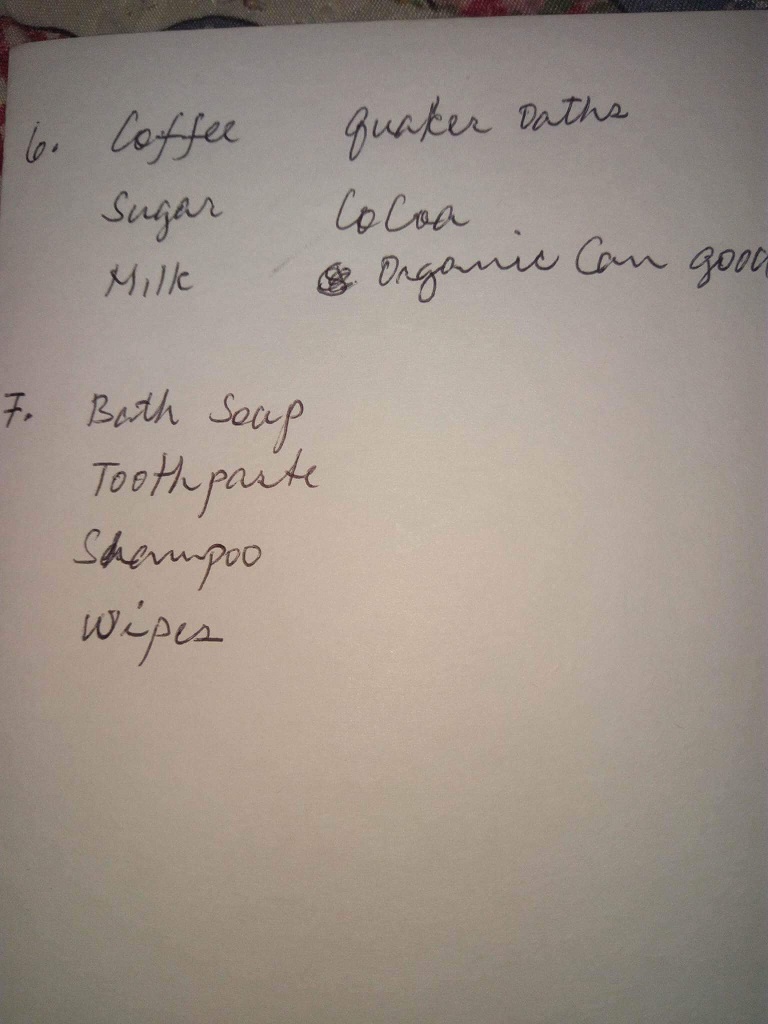 6. Coffee Quaker Oaths
Sugar CoCoa
Milk Organic Can good
7. Bath Soap
Toothpaste
Shampoo
Wipes